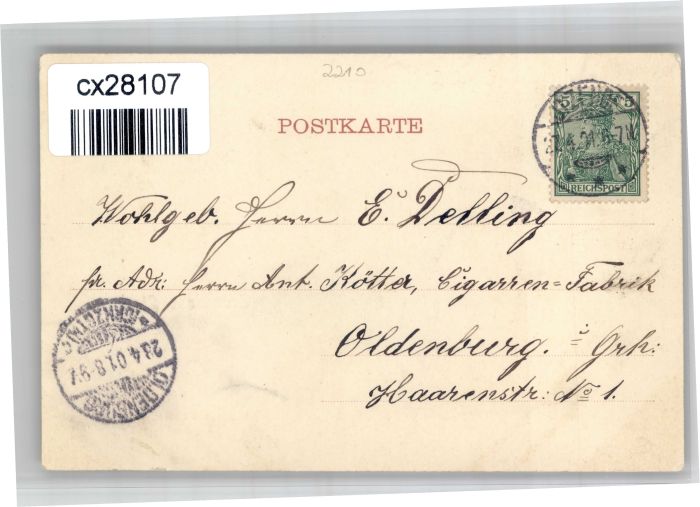 cx28107
2210
POSTKARTE
5 5
REICHSPOST
Wohlgeb. Herrn E. Delling
pr. Adr: Herrn Ant. Kötter, Cigarren=Fabrik
Oldenburg. i. Grh:
Haarenstr: No 1.
OLDENBURG
23.4.01.8-9V.
(GRHZGTM.)